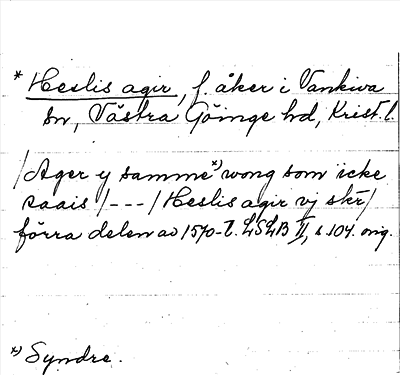 * Heslis agir, f. åker i Vankiva
sn, Västra Göinge hd, Krist. l.
/Ager y samme *) wong som icke
saais /---/ Heslis agir vj skr/
förra delen av 1570-t. LSLB II, s 104. orig.
*) Syndre.